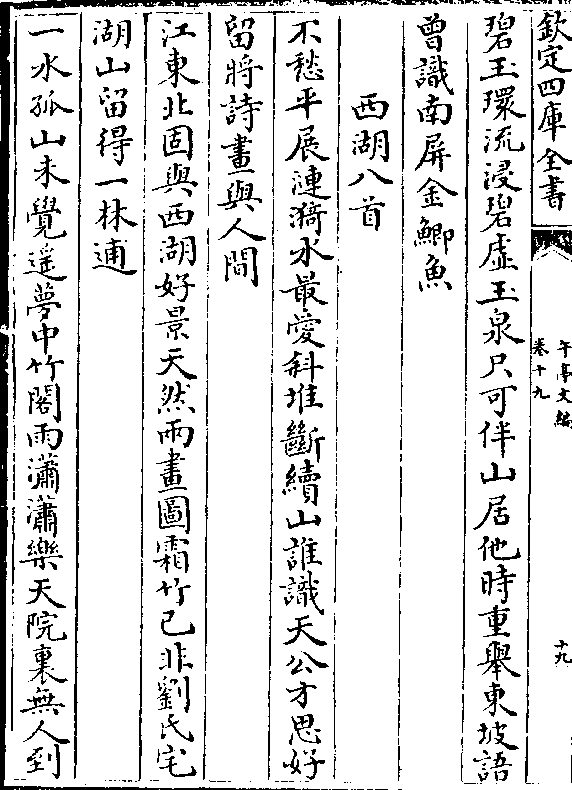 欽定四庫全書
午亭文編
卷十九
十九
碧玉環流浸碧虛玉泉只可伴山居他時重舉東坡語
曽識南屏金鯽魚
西湖八首
不愁平展漣漪水最愛斜堆斷續山誰識天公才思好
留將詩畫與人間
江東北固與西湖好景天然兩畫圖霜竹已非劉氏宅
湖山留得一林逋
一水孤山未覺遥夢中竹閣雨瀟瀟樂天院裏無人到